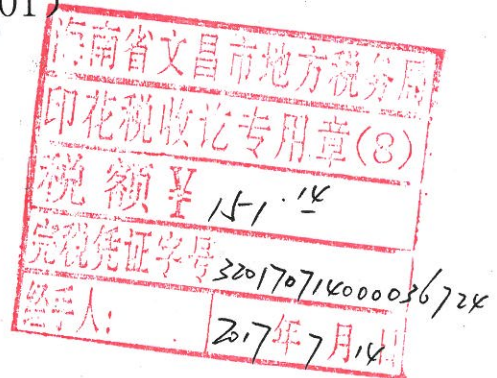 01)
海南省文昌市地方税务局
印花税收讫专用章(8)
税额¥ 151.14
完税凭证字号 320170714000036724
经手人: 2017年7月14日